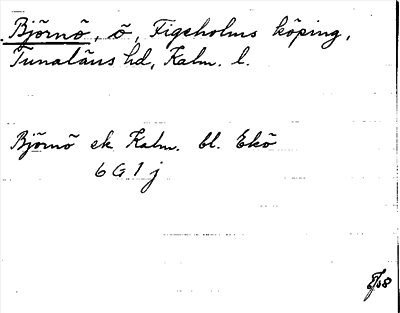 Björnö, ö, Figeholms köping,
Tunaläns hd, Kalm. l.
Björnö ek Kalm. bl. Ekö
6 G 1 j